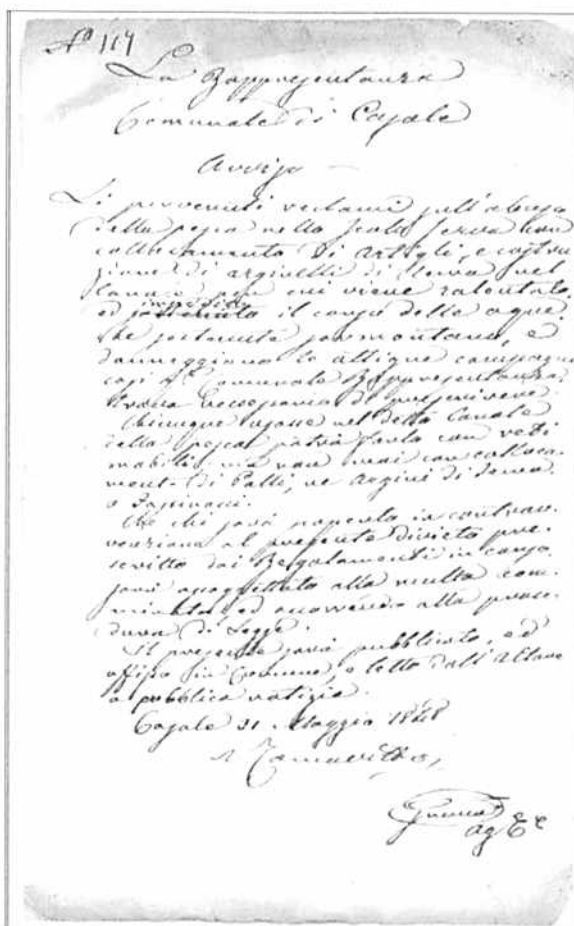 N° 117
La Rappresentanza
Comunale di Casale
Avviso
pervenuti reclami sull'abuso
della pesca nello Scolo Serva con
collocamento di Artigli, e costru
zione di arginelli di terra nel
per cui viene ralentato,
impedito
ed il corso delle aque
che pertanto sormontano, e
danneggiano le attigue campagne
così Comunale Rappresentanza
trova necessario di prescrivere
Chiunque usasse nel detto Canale
della pesca potrà farlo con reti
mobili, ma non mai con colloca
mento di Palli, ne argini di terra
o
Che chi sarà scoperto in contrav
venzione al presente divieto pre
scritto dai Regolamenti in corso
sarà assoggettato alla multa com
minata, ed occorrendo alla proce
dura di Legge.
Il presente sarà pubblicato, ed
affisso in Comune, e letto dall'Altare
a pubblica notizia.
Casale 31 Maggio 1848
Ag